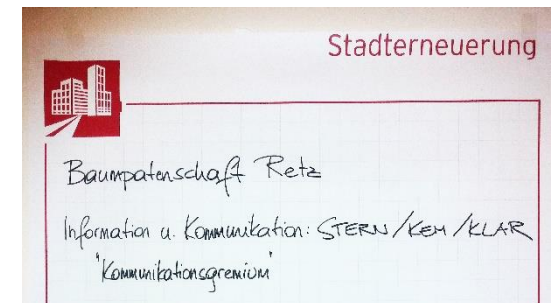 Stadterneuerung
Baumpatenschaft Retz
Information u. Kommunikation: STERN/KEM/KLAR
"Kommunikationsgremium"